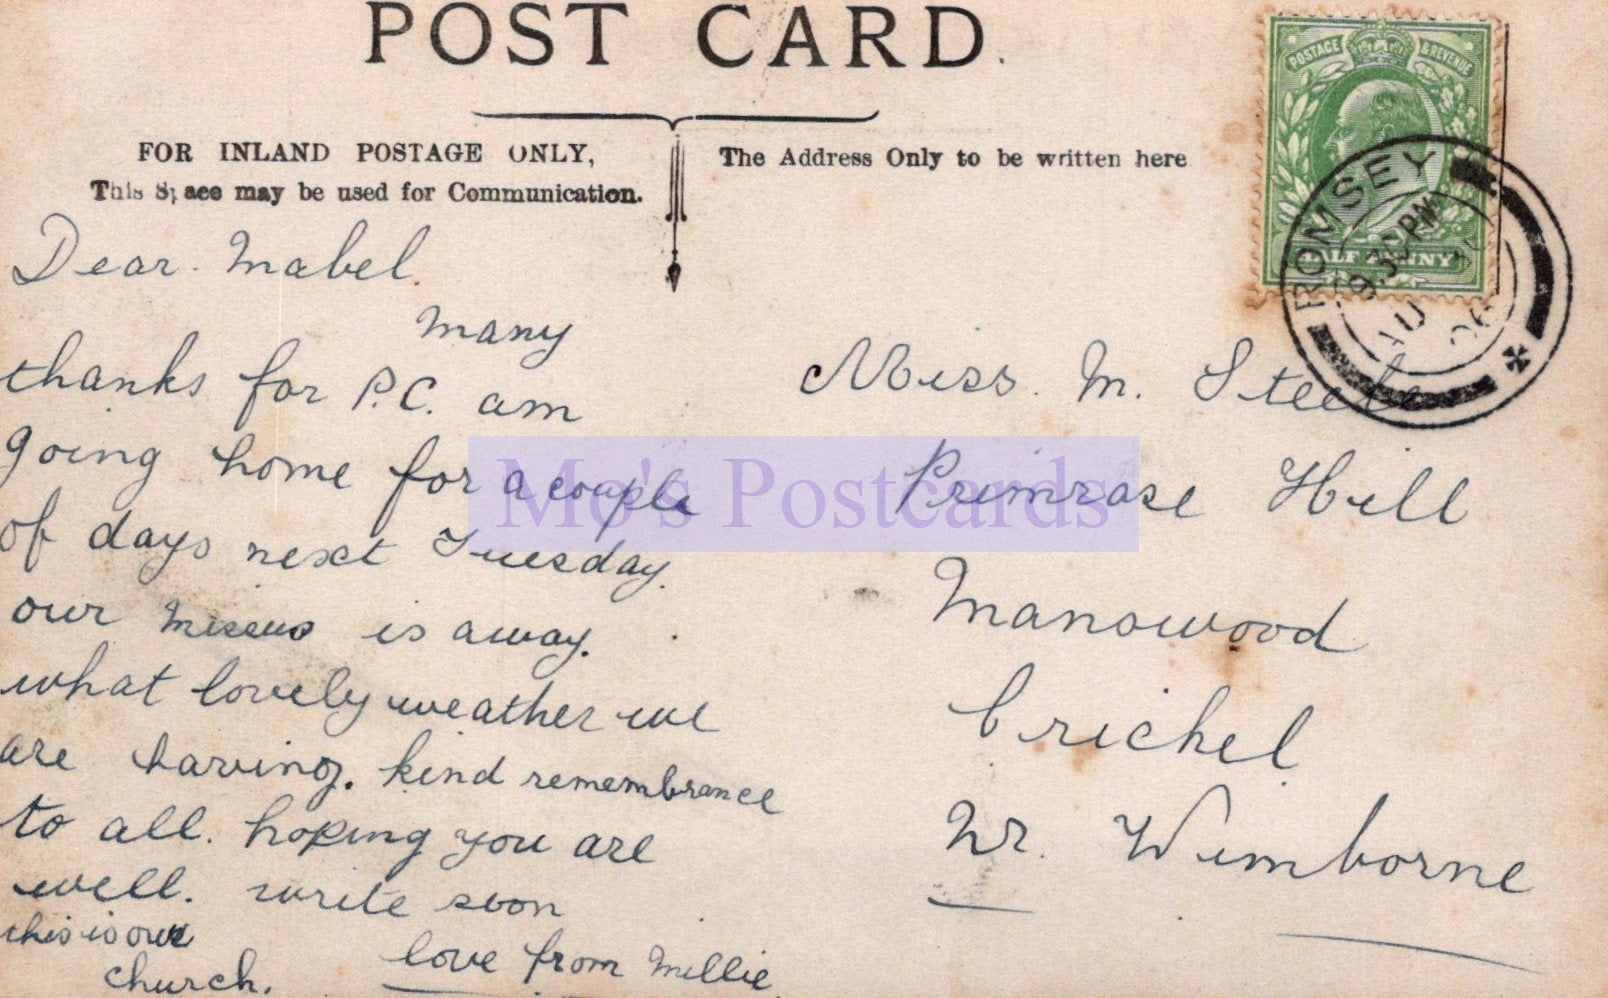 POST CARD.
FOR INLAND POSTAGE ONLY,
This Space may be used for Communication.
The Address Only to be written here
POSTAGE & REVENUE
HALF PENNY
ROMSEY
9.30PM
AU
06
Dear Mabel.
Many
thanks for P.C. am
going home for a couple
of days next Tuesday.
our missus is away.
what lovely weather we
are having. kind remembrance
to all. hoping you are
well. write soon
this is our
church.
love from Millie
Miss. M. Steele
Primrose Hill
Manswood
Crichel
Nr. Wimborne
Mo's Postcards